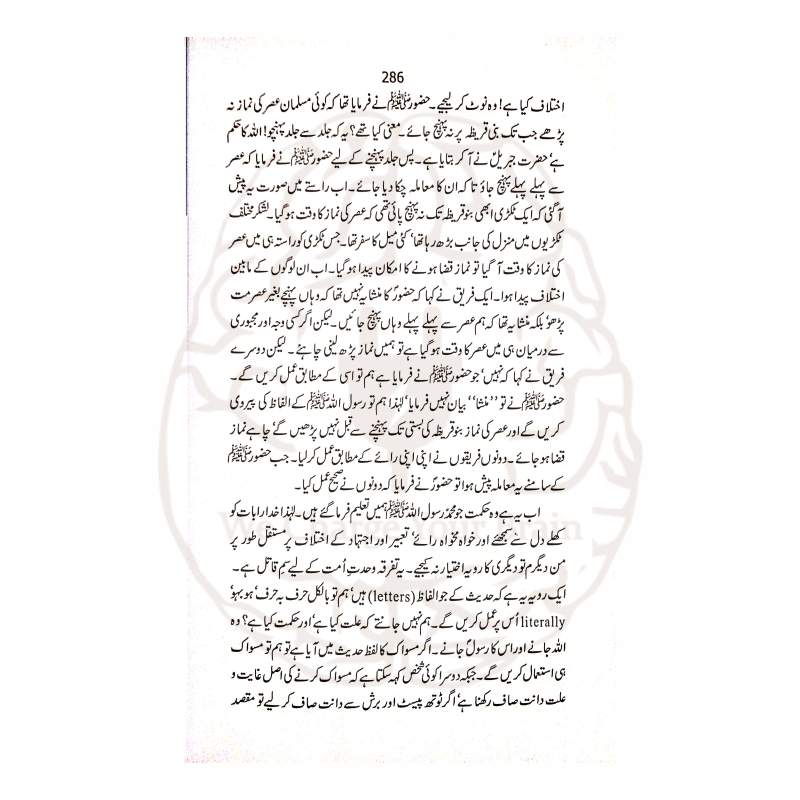 286
اختلاف کیا ہے! وہ نوٹ کر لیجیے۔ حضور ﷺ نے فرمایا تھا کہ کوئی مسلمان عصر کی نماز نہ
پڑھے جب تک بنی قریظہ پر نہ پہنچ جائے۔ معنی کیا تھے؟ یہ کہ جلد سے جلد پہنچو! اللہ کا حکم
ہے، حضرت جبریلؑ نے آ کر بتایا ہے۔ پس جلد پہنچنے کے لیے حضور ﷺ نے فرمایا کہ عصر
سے پہلے پہلے پہنچ جاؤ تا کہ ان کا معاملہ چکا دیا جائے۔ اب راستے میں صورت یہ پیش
آ گئی کہ ایک ٹکڑی ابھی بنو قریظہ تک نہ پہنچ پائی تھی کہ عصر کی نماز کا وقت ہو گیا۔ لشکر مختلف
ٹکڑیوں میں منزل کی جانب بڑھ رہا تھا، کئی میل کا سفر تھا۔ جس ٹکڑی کو راستہ ہی میں عصر
کی نماز کا وقت آ گیا تو نماز قضا ہونے کا امکان پیدا ہو گیا۔ اب ان لوگوں کے مابین
اختلاف پیدا ہوا۔ ایک فریق نے کہا کہ حضورؐ کا منشا یہ نہیں تھا کہ وہاں پہنچے بغیر عصر مت
پڑھو، بلکہ منشا یہ تھا کہ ہم عصر سے پہلے پہلے وہاں پہنچ جائیں۔ لیکن اگر کسی وجہ اور مجبوری
سے درمیان ہی میں عصر کا وقت ہو گیا ہے تو ہمیں نماز پڑھ لینی چاہئے۔ لیکن دوسرے
فریق نے کہا کہ نہیں، جو حضور ﷺ نے فرمایا ہے ہم تو اسی کے مطابق عمل کریں گے۔
حضور ﷺ نے تو ’’منشا‘‘ بیان نہیں فرمایا، لہٰذا ہم تو رسول اللہ ﷺ کے الفاظ کی پیروی
کریں گے اور عصر کی نماز بنو قریظہ کی بستی تک پہنچنے سے قبل نہیں پڑھیں گے، چاہے نماز
قضا ہو جائے۔ دونوں فریقوں نے اپنی اپنی رائے کے مطابق عمل کر لیا۔ جب حضور ﷺ
کے سامنے یہ معاملہ پیش ہوا تو حضورؐ نے فرمایا کہ دونوں نے صحیح عمل کیا۔
اب یہ ہے وہ حکمت جو محمدٌ رسول اللہ ﷺ ہمیں تعلیم فرما گئے ہیں۔ لہٰذا خدارا بات کو
کھلے دل سے سمجھئے اور خواہ مخواہ رائے، تعبیر اور اجتہاد کے اختلاف پر مستقل طور پر
من دیگرم تو دیگری کا رویہ اختیار نہ کیجیے۔ یہ تفرقہ وحدتِ اُمت کے لیے سمِ قاتل ہے۔
ایک رویہ یہ ہے کہ حدیث کے جو الفاظ (letters) ہیں، ہم تو بالکل حرف بہ حرف، ہو بہو،
literally اُس پر عمل کریں گے۔ ہم نہیں جانتے کہ علت کیا ہے، اور حکمت کیا ہے؟ وہ
اللہ جانے اور اس کا رسولؐ جانے۔ اگر مسواک کا لفظ حدیث میں آیا ہے تو ہم تو مسواک
ہی استعمال کریں گے۔ جبکہ دوسرا کوئی شخص کہہ سکتا ہے کہ مسواک کرنے کی اصل غایت و
علت دانت صاف رکھنا ہے، اگر ٹوتھ پیسٹ اور برش سے دانت صاف کر لیے تو مقصد
We Charge Your Brain